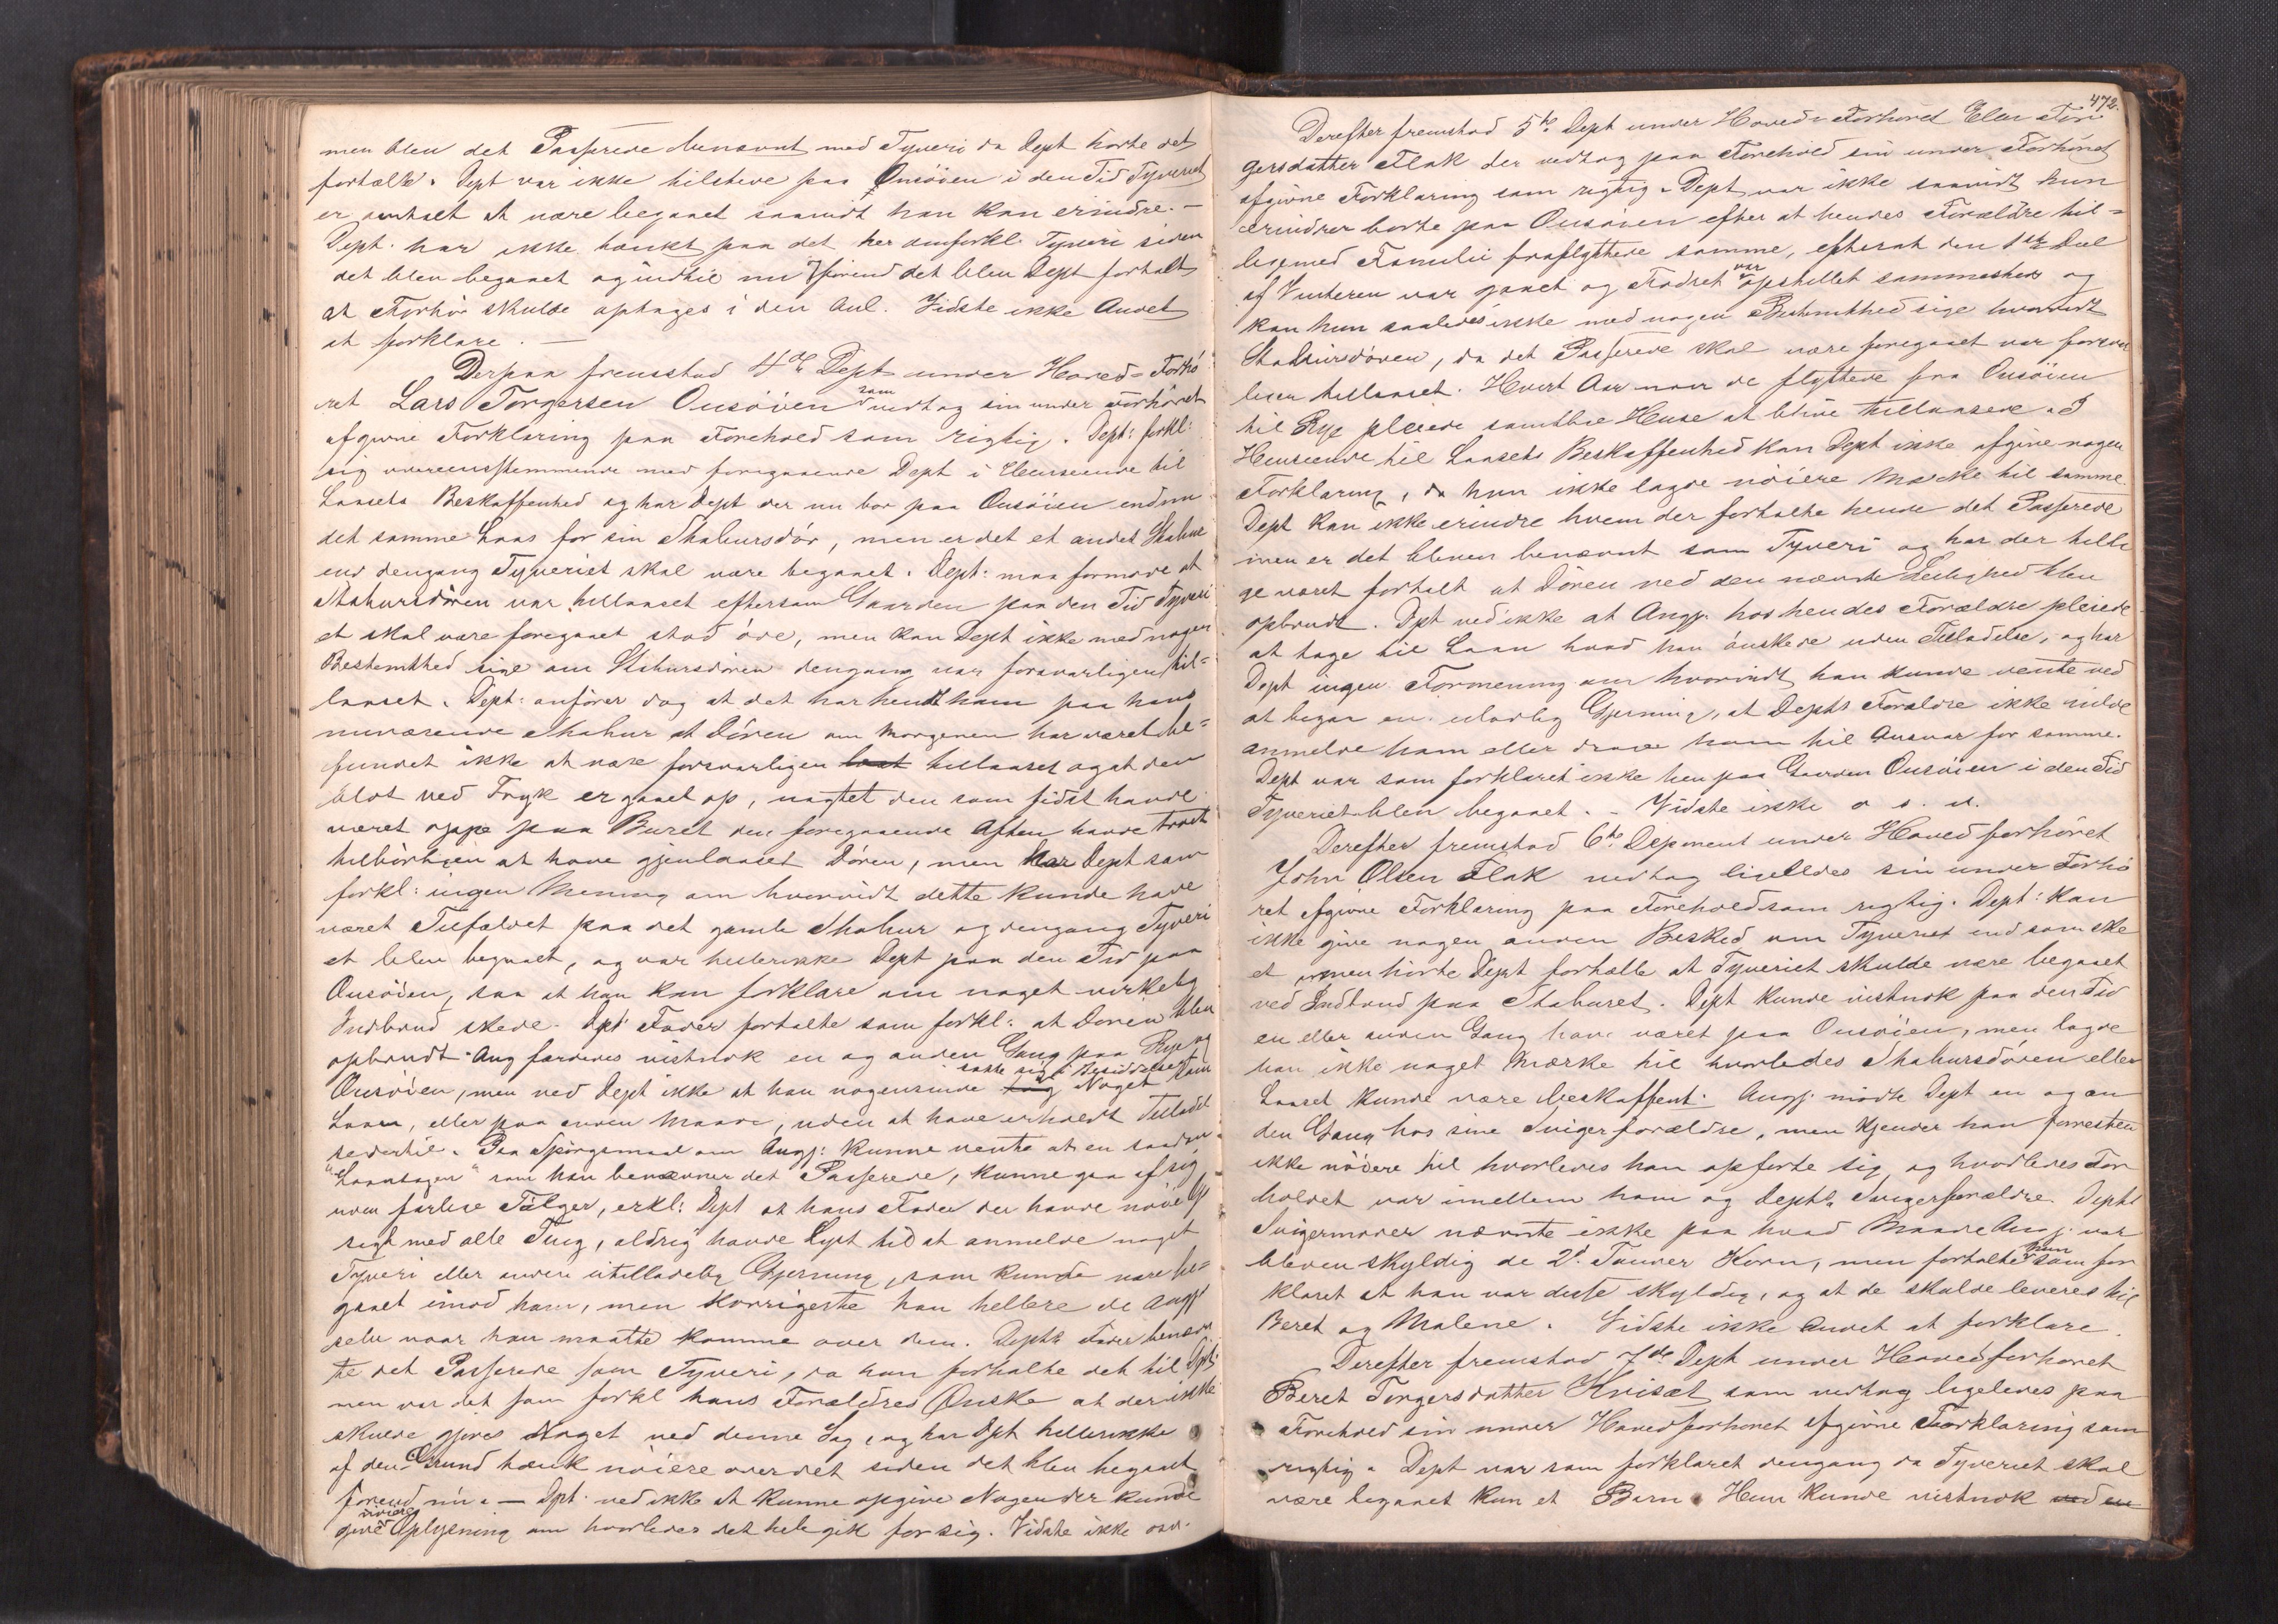 men blev det Passerede benævnt med Tyveri da Dept hørte det
fortælle. Dept var ikke tilstede paa Ousöien i den Tid Tyveriet
er antaget at være begaaet saavidt han kan erindre. —
Dept. har ikke tænkt paa det her omforkl. Tyveri siden
det blev begaaet og indtil nu förend det blev Dept fortalt
at Forhör skulde optages i den Anl. Vidste ikke Andet
at forklare. —
Derpaa fremstod 4de Dept under Hoved-Forhö
ret Lars Torgersen Ousöien som vedtog sin under Forhöret
afgivne Forklaring paa Forehold som rigtig. Dept: forkl:
sig overensstemmende med foregaaende Dept i Henseende til
Laasets Beskaffenhed og har Dept der nu bor paa Ousöien endnu
det samme Laas for sin Stabursdör, men er det et andet Stabur
end dengang Tyveriet skal være begaaet. Dept: maa formode at
Stabursdören var tillaaset eftersom Gaarden paa den Tid Tyveri
et skal være foregaaet stod öde, men kan Dept ikke med nogen
Bestemthed sige om Stabursdören dengang var forsvarligen til-
laaset. Dept: anförer dog at det har hendt ham paa hans
nuværende Stabur at Dören om Morgenen har været be-
fundet ikke at være forsvarligen tillaaset og at den
blot ved Tryk er gaaet op, uagtet den som sidst havde
været oppe paa Buret den foregaaende Aften havde troet
tilbörligen at have gjenlaaset Dören, men har Dept som
forkl: ingen Mening om hvorvidt dette kunde have
været Tilfældet paa det gamle Stabur og dengang Tyveri
et blev begaaet, og var hellerikke Dept paa den Tid paa
Ousöien, saa at han kan forklare om noget virkelig
Indbrud skede. Dpts Fader fortalte som forkl: at Dören blev
opbrudt. Ang færdedes vistnok en og anden Gang paa Rye og
Ousöien, men ved Dept ikke at han nogensinde satte sig i Besiddelse af Noget som
Laan, eller paa anden Maade, uden at have erholdt Tilladel
se dertil. Paa Spörgsmaal om Angj: kunne vente at en saadan
"Laantagen" som han benævner det Passerede, kunne gaa af sig
uden farlige Fölger, erkl: Dept at hans Fader der havde nöie
sigt med alle Ting, aldrig havde Lyst til at anmelde noget
Tyveri eller anden utilladelig Gjerning, som kunde være be-
gaaet imod ham, men korrigerte han hellere de Angj
selv naar han maatte komme over dem. Depts Fader benævn
te det Passerede som Tyveri, da han fortalte det til Dpt:
men var det som forkl hans Forældres Önske at der ikke
skulde gjöres Noget ved denne Sag, og har Dpt hellerikke
af den Grund tænkt nöiere over det siden det blev begaaet
förend nu. — Dpt. ved ikke at kunne opgive Nogen der kunde
give nöiere Oplysning om hvorledes det hele gik for sig. Vidste ikke osv.
472.
Derefter fremstod 5te Dept under Hoved-Forhöret Elen Tor
gersdatter Flak der vedtog paa Forehold sin under Forhöret
afgivne Forklaring som rigtig. Dept var ikke saavidt hun
erindrer borte paa Ousöien efter at hendes Forældre til-
ligemed Familie fraflyttede samme, efterat den 1ste Deel
af Vinteren var gaaet og Fodret var opstillet sammesteds og
kan hun saaledes ikke med nogen Bestemthed sige hvorvidt
Stabursdören, da det Passerede skal være foregaaet var forsvar
ligen tillaaset. Hvert Aar naar de flyttede fra Ousöien
til Rye pleiede samtlige Huse at blive tillaasede. I
Henseende til Laasets Beskaffenhed kan Dept ikke afgive nogen
Forklaring, da hun ikke lagde nöiere Mærke til samme.
Dept kan ikke erindre hvem der fortalte hende det Passerede
men er det bleven benævnt som Tyveri og har der tilli
ge været fortalt at Dören ved den nævnte Leilighed blev
opbrudt. Dpt ved ikke at Angj. hos hendes Forældre pleiede
at tage til Laan hvad han önskede uden Tilladelse, og har
Dept ingen Formening om hvorvidt han kunde vente ved
at begaa en ulovlig Gjerning, at Depts Forældre ikke vilde
anmelde ham eller drage ham til Ansvar for samme.
Dept var som forklaret ikke hen paa Gaarden Ousöien i den Tid
Tyveriet blev begaaet. – Vidste ikke o. s. v.
Derefter fremstod 6te Deponent under Hovedforhöret
John Olsen Flak vedtog ligeledes sin under Forhö
ret afgivne Forklaring paa Forehold som rigtig. Dept: kan
ikke give nogen anden Besked om Tyveriet end som ske
et men hörte Dept fortælle at Tyveriet skulde være begaaet
ved Indbrud paa Staburet. Dept kunde vistnok paa den Tid
en eller anden Gang have været paa Ousöien, men lagde
han ikke noget Mærke til hvorledes Stabursdören eller
Laaset kunde være beskaffent. Angj. mödte Dept en og an
den Gang hos sine Svigerforældre, men kjender han forresten
ikke nöiere til hvorledes han opförte sig og hvorledes For
holdet var imellem ham og Depts Svigerforældre. Depts
Svigermoder nævnte ikke paa hvad Maade Angj. var
bleven skyldig de 2d. Tønder Korn, men fortalte hun som for
klaret at han var disse skyldig, og at de skulde leveres til
Beret og Malene. Vidste ikke Andet at forklare.
Derefter fremstod 7de Dept under Hovedforhöret
Beret Torgersdatter Kvisæt som vedtog ligeledes paa
Forehold sin under Hovedforhöret afgivne Forklaring som
rigtig. Dept var som forklaret dengang da Tyveriet skal
være begaaet kun et Barn. Hun kunde vistnok ved en